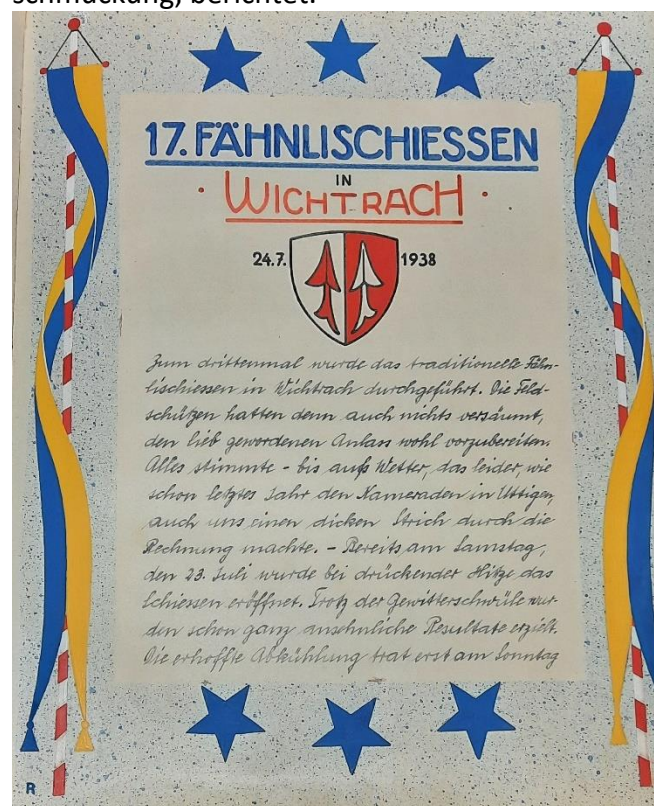 schmückung, berichtet.
17. FÄHNLISCHIESSEN
IN
· WICHTRACH ·
24.7. 1938
Zum drittenmal wurde das traditionelle Fähn-
lischiessen in Wichtrach durchgeführt. Die Feld-
schützen hatten denn auch nichts versäumt,
den lieb gewordenen Anlass wohl vorzubereiten.
Alles stimmte - bis aufs Wetter, das leider, wie
schon letztes Jahr den Kameraden in Uttigen,
auch uns einen dicken Strich durch die
Rechnung machte. - Bereits am Samstag,
den 23. Juli wurde bei drückender Hitze das
Schiessen eröffnet. Trotz der Gewitterschwüle wur-
den schon ganz ansehnliche Resultate erzielt.
Die erhoffte Abkühlung trat erst am Sonntag
R